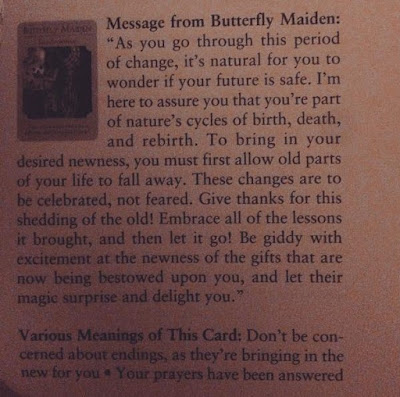 BUTTERFLY MAIDEN
Message from Butterfly Maiden:
“As you go through this period
of change, it’s natural for you to
wonder if your future is safe. I’m
here to assure you that you’re part
of nature’s cycles of birth, death,
and rebirth. To bring in your
desired newness, you must first allow old parts
of your life to fall away. These changes are to
be celebrated, not feared. Give thanks for this
shedding of the old! Embrace all of the lessons
it brought, and then let it go! Be giddy with
excitement at the newness of the gifts that are
now being bestowed upon you, and let their
magic surprise and delight you.”
Various Meanings of This Card: Don’t be con-
cerned about endings, as they’re bringing in the
new for you * Your prayers have been answered